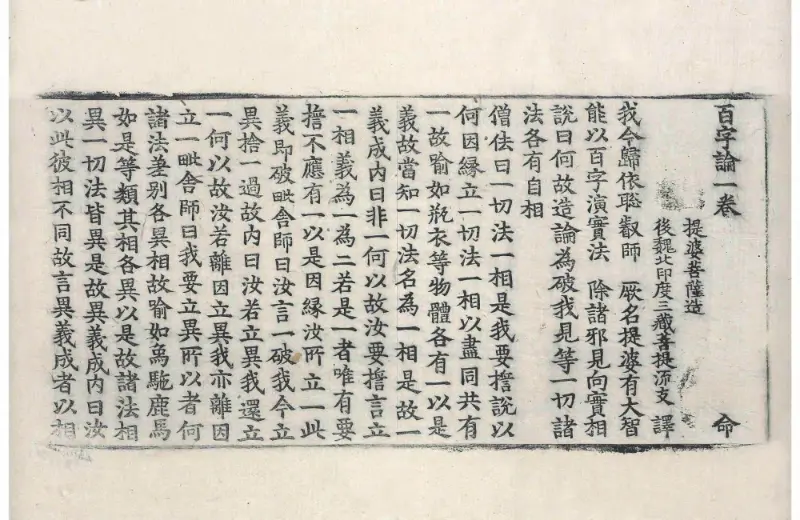 百字論一卷 命
提婆菩薩造
後魏北印度三藏菩提流支 譯
我今歸依聡叡師 厥名提婆有大智
能以百字演實法 除諸邪見向實相
說曰何故造論為破我見等一切諸
法各有自相
僧佉曰一切法一相是我要擔說以
何因緣立一切法一相以盡同共有
一故喻如瓶衣等物體各有一以是
義故當知一切法名為一相是故一
義成內曰非一何以故汝要擔言立
一相義為一為二若是一者唯有要
擔不應有一以是因緣汝所立一此
義即破毗舍師曰汝言一破我今立
異捨一過故內曰汝若立異我還立
一何以故汝若離因立異我亦離因
立一毗舍師曰我要立異所以者何
諸法差別各異相故喻如象馳鹿馬
如是等類其相各異以是故諸法相
異一切法皆異是故異義成內曰汝
以此彼相不同故言異義成者以相